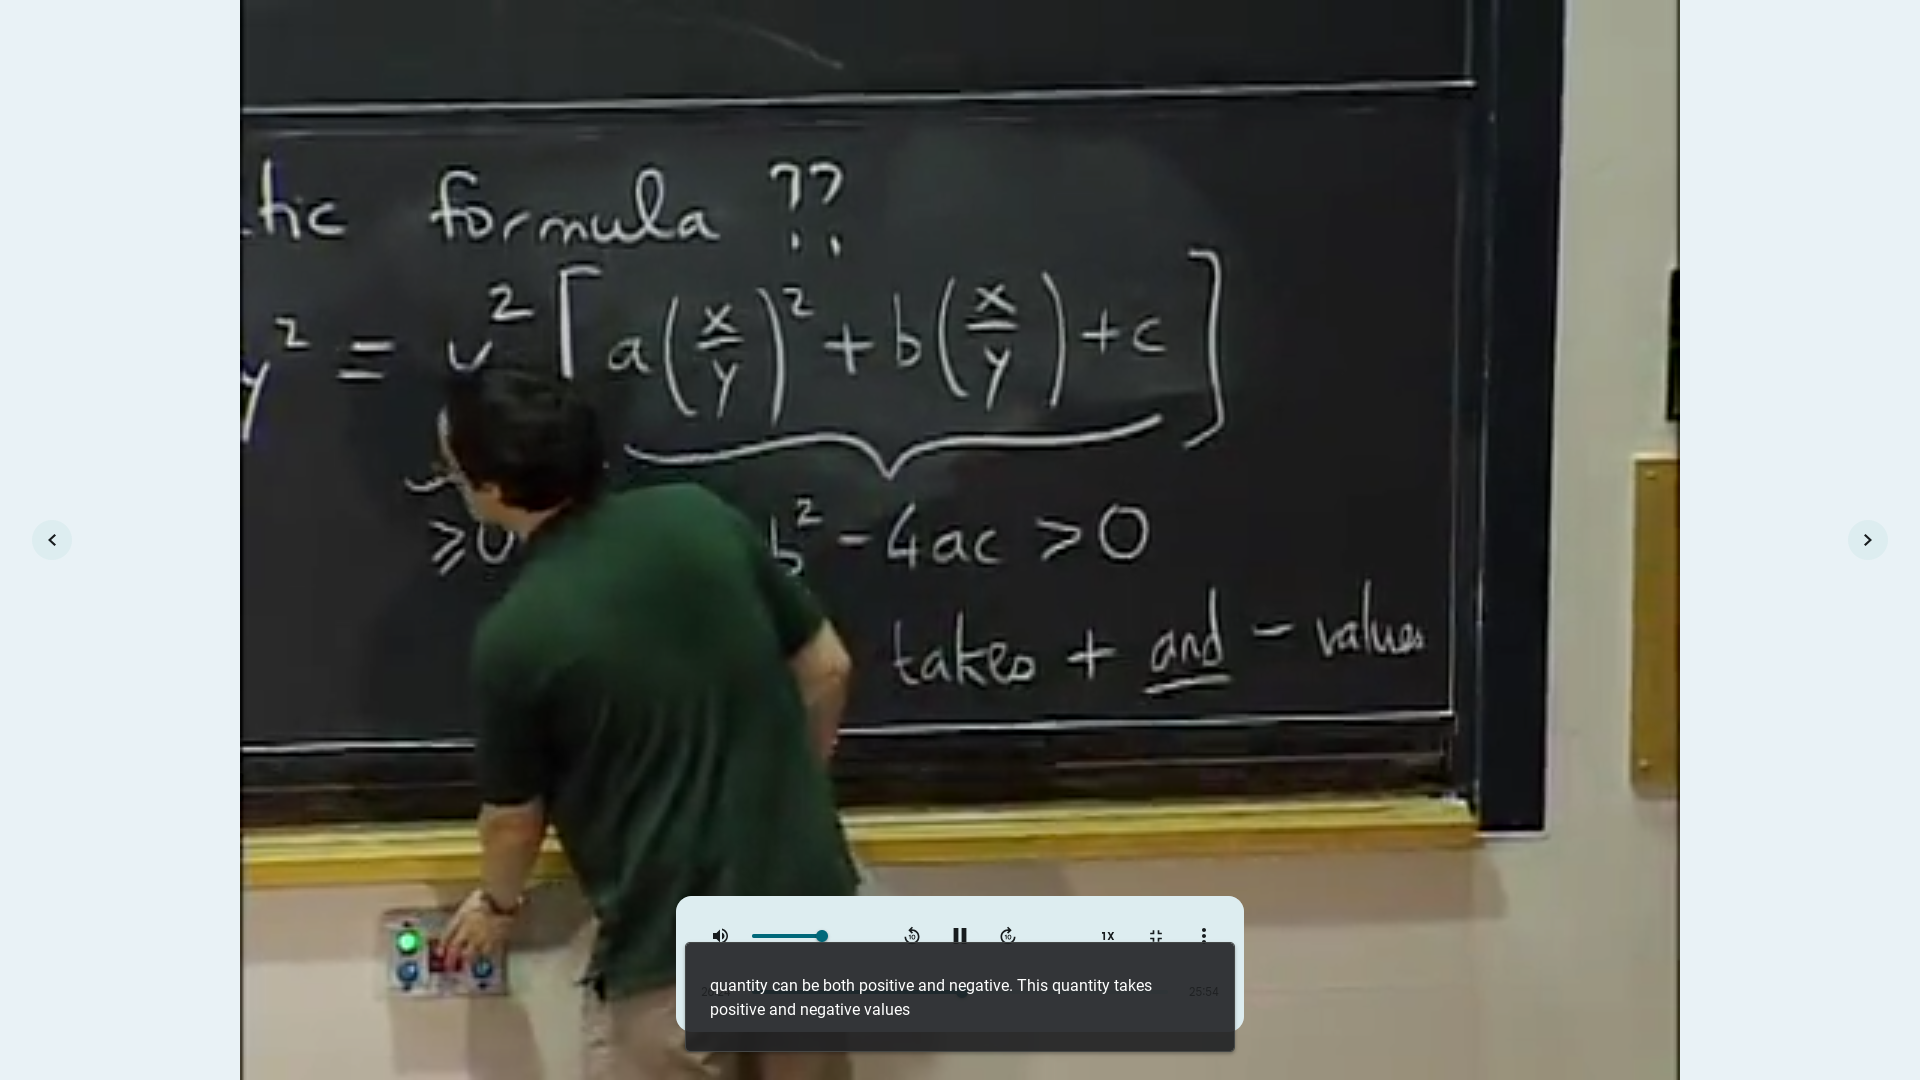 tic formula ??
y² = y² [a(x/y)² + b(x/y) + c]
≥0 b² - 4ac > 0
takes + and - values
1X
quantity can be both positive and negative. This quantity takes
positive and negative values
25:54